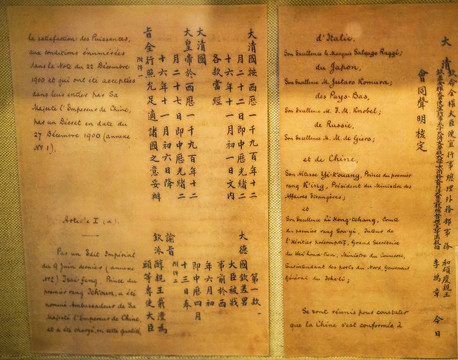 la satisfaction des Puissances,
aux conditions énumérées
dans la Note du 22 Décembre
1900 et qui ont été acceptées
dans leur entier par Sa
Majesté l'Empereur de Chine,
par un Décret en date du
27 Décembre 1900 (annexe
No 1).
Article I (a).
Par un Édit Impérial
du 9 Juin dernier (annexe
No 2), Tsai feng, Prince du
premier rang Tch'ouen, a été
nommé Ambassadeur de Sa
Majesté l'Empereur de Chine
et a été chargé en cette qualité
大清國按西歷一千九百年十二
月二十二日即中歷光緒二
十六年十一月初一日文內
各款當經
大清國
大皇帝於西歷一千九百年十二
月二十七日即中歷光緒二
十六年十一月初六日降
旨全行照允足適諸國之意妥辦
附件一
第一款一
大德國欽差男
大臣被戕
事前於西
年六月初
即中歷四
十三日奉
諭旨
附件二
欽派醇親王載灃為
頭等專使大臣
d'Italie,
Son Excellence le Marquis Salvago Raggi;
du Japon,
Son Excellence M. Jutaro Komura;
des Pays Bas,
Son Excellence M. F. M. Knobel;
de Russie,
Son Excellence M. M. de Giers;
et de Chine,
Son Altesse Yi-K'ouang, Prince du premier
rang K'ing, Président du Ministère des
Affaires Étrangères;
et
Son Excellence Li Hong-tchang, Comte
du premier rang Sou-yi, Tuteur de
l'Héritier Présomptif, Grand Secrétaire
Se sont réunis pour constater
que la Chine s'est conformée à
大清
李鴻章
會同聲明核定
今日